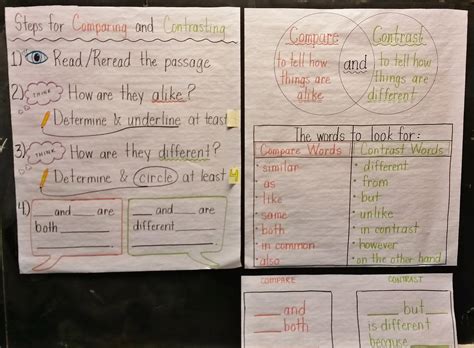 Steps for Comparing and Contrasting
1) Read/Reread the passage
2) THINK How are they alike?
Determine & underline at least
3) THINK How are they different?
Determine & circle at least 4
4) ___ and ___ are
both ___
___ and ___ are
different ___
Compare
to tell how
things are
alike
and
Contrast
to tell how
things are
different
The words to look for:
Compare Words
• similar
• as
• like
• same
• both
• in common
• also
Contrast Words
• different
• from
• but
• unlike
• in contrast
• however
• on the other hand
COMPARE
___ and
___ both
CONTRAST
___ but
is different
because